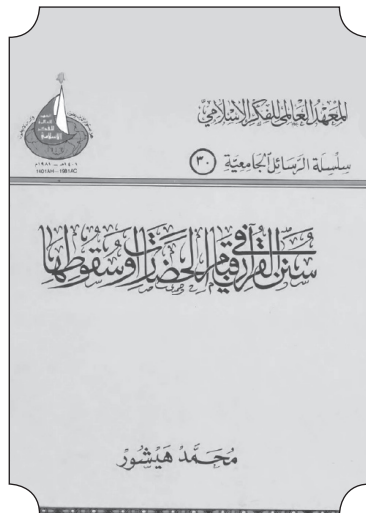 المعهد العالمي للفكر الإسلامي
سلسلة الرسائل الجامعية ٣٠
١٤٠١هـ - ١٩٨١م
1401AH - 1981AC
سنن القرآن في قيام الحضارات وسقوطها
محمد هيشور